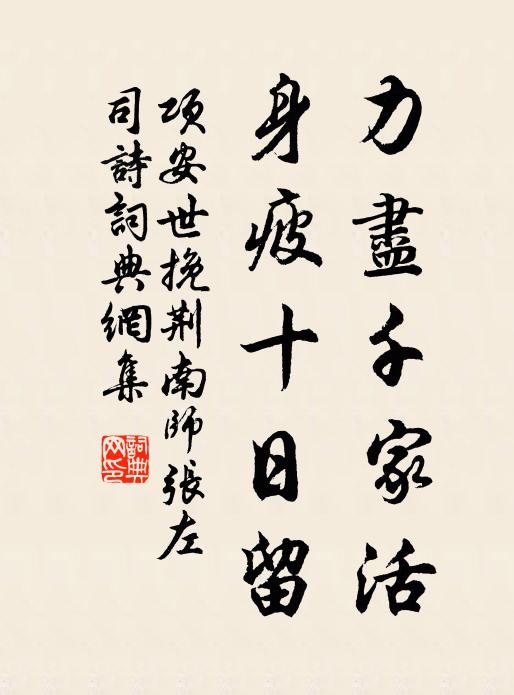 力盡千家活
身疲十日留
項安世挽荆南師張左
司詩詞典網集
詞典网印